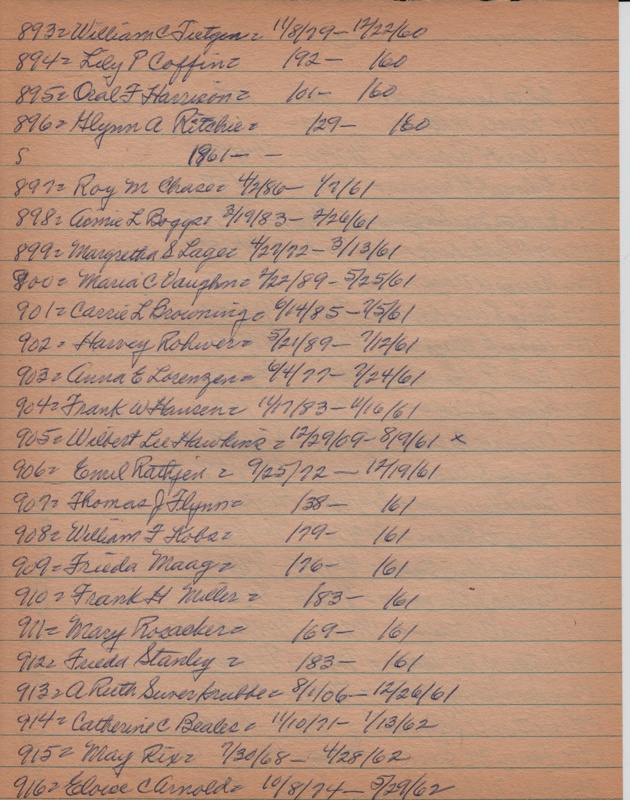 893= William C Tietgen = 11/8/79 – 12/22/60
894= Lily P Coffin= 192– 160
895= Oral F Harrison= 101– 160
896= Glynn A Ritchie= 129– 160
S 1961 – –
897= Roy M Chase= 4/2/86– 1/7/61
898= L Boggs= 3/19/83 – 2/26/61
899= Margretha S Lage= 4/27/72 – 3/13/61
900= Maria C Vaughn= 2/22/89 – 5/25/61
901= Carrie L Browning= 6/14/85 – 7/5/61
902= Harvey Rohwer= 5/21/89 – 7/12/61
903= Anna E Lorenzen= 6/4/77 – 7/24/61
904= Frank W Hansen= 11/17/83 – 4/16/61
905= Wilbert Lee Hawkins = 12/29/09 – 8/9/61 x
906= Emil Rathjen = 9/25/72 – 12/19/61
907= Thomas J Flynn= 138– 161
908= William F Kobs= 179– 161
909= Frieda Maag= 176– 161
910= Frank H Miller= 183– 161
911= Mary Rosacker= 169– 161
912= Frieda Stanley = 183– 161
913= A Ruth = 8/1/06 – 12/26/61
914= Catherine C Beales = 11/10/71 – 1/13/62
915= May Rix= 7/30/68 – 4/28/62
916= Eloise C Arnold= 10/8/74 – 5/29/62